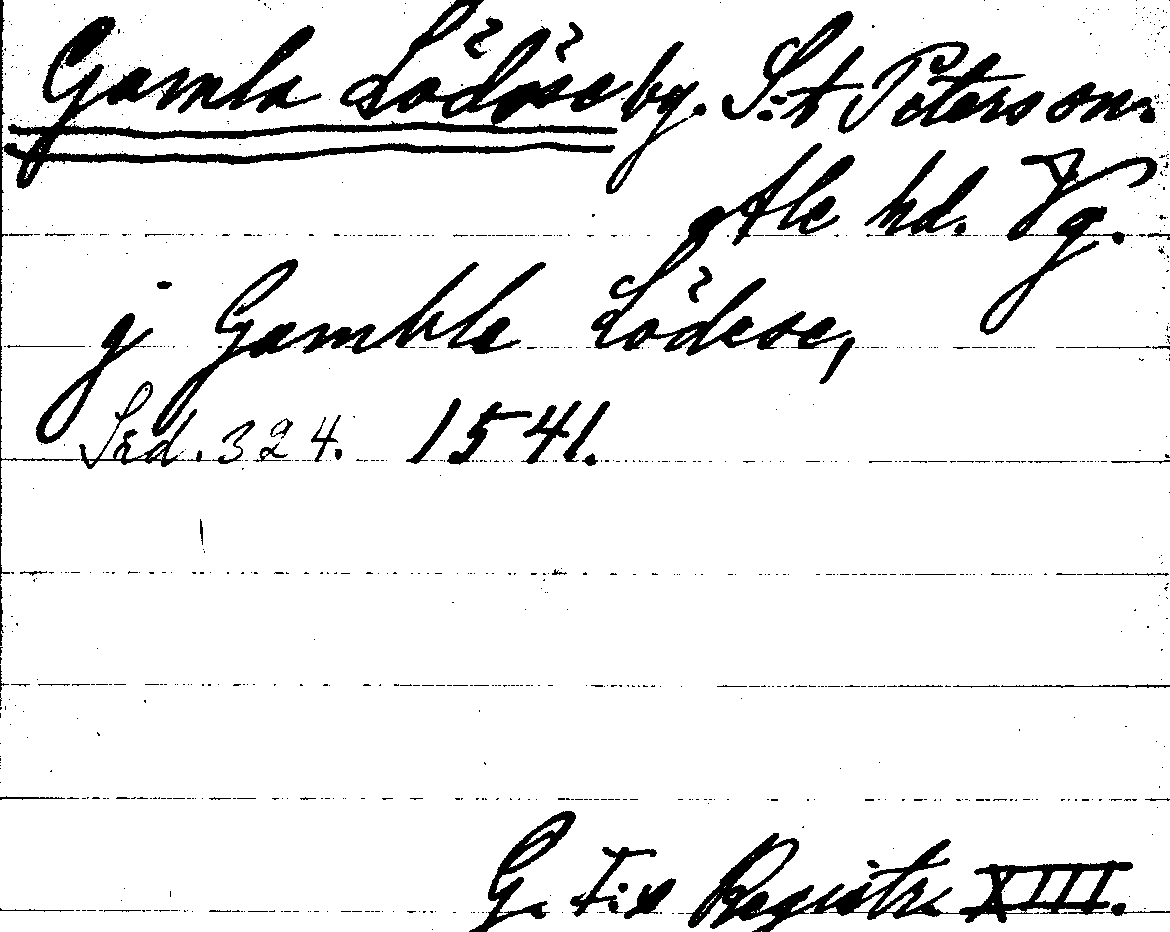 Gamla Lödöse by. S:t Peters sn.
Ale hd. Vg.
j Gamble Lödese,
Srd. 324. 1541.
G. I:s Registr. XIII.